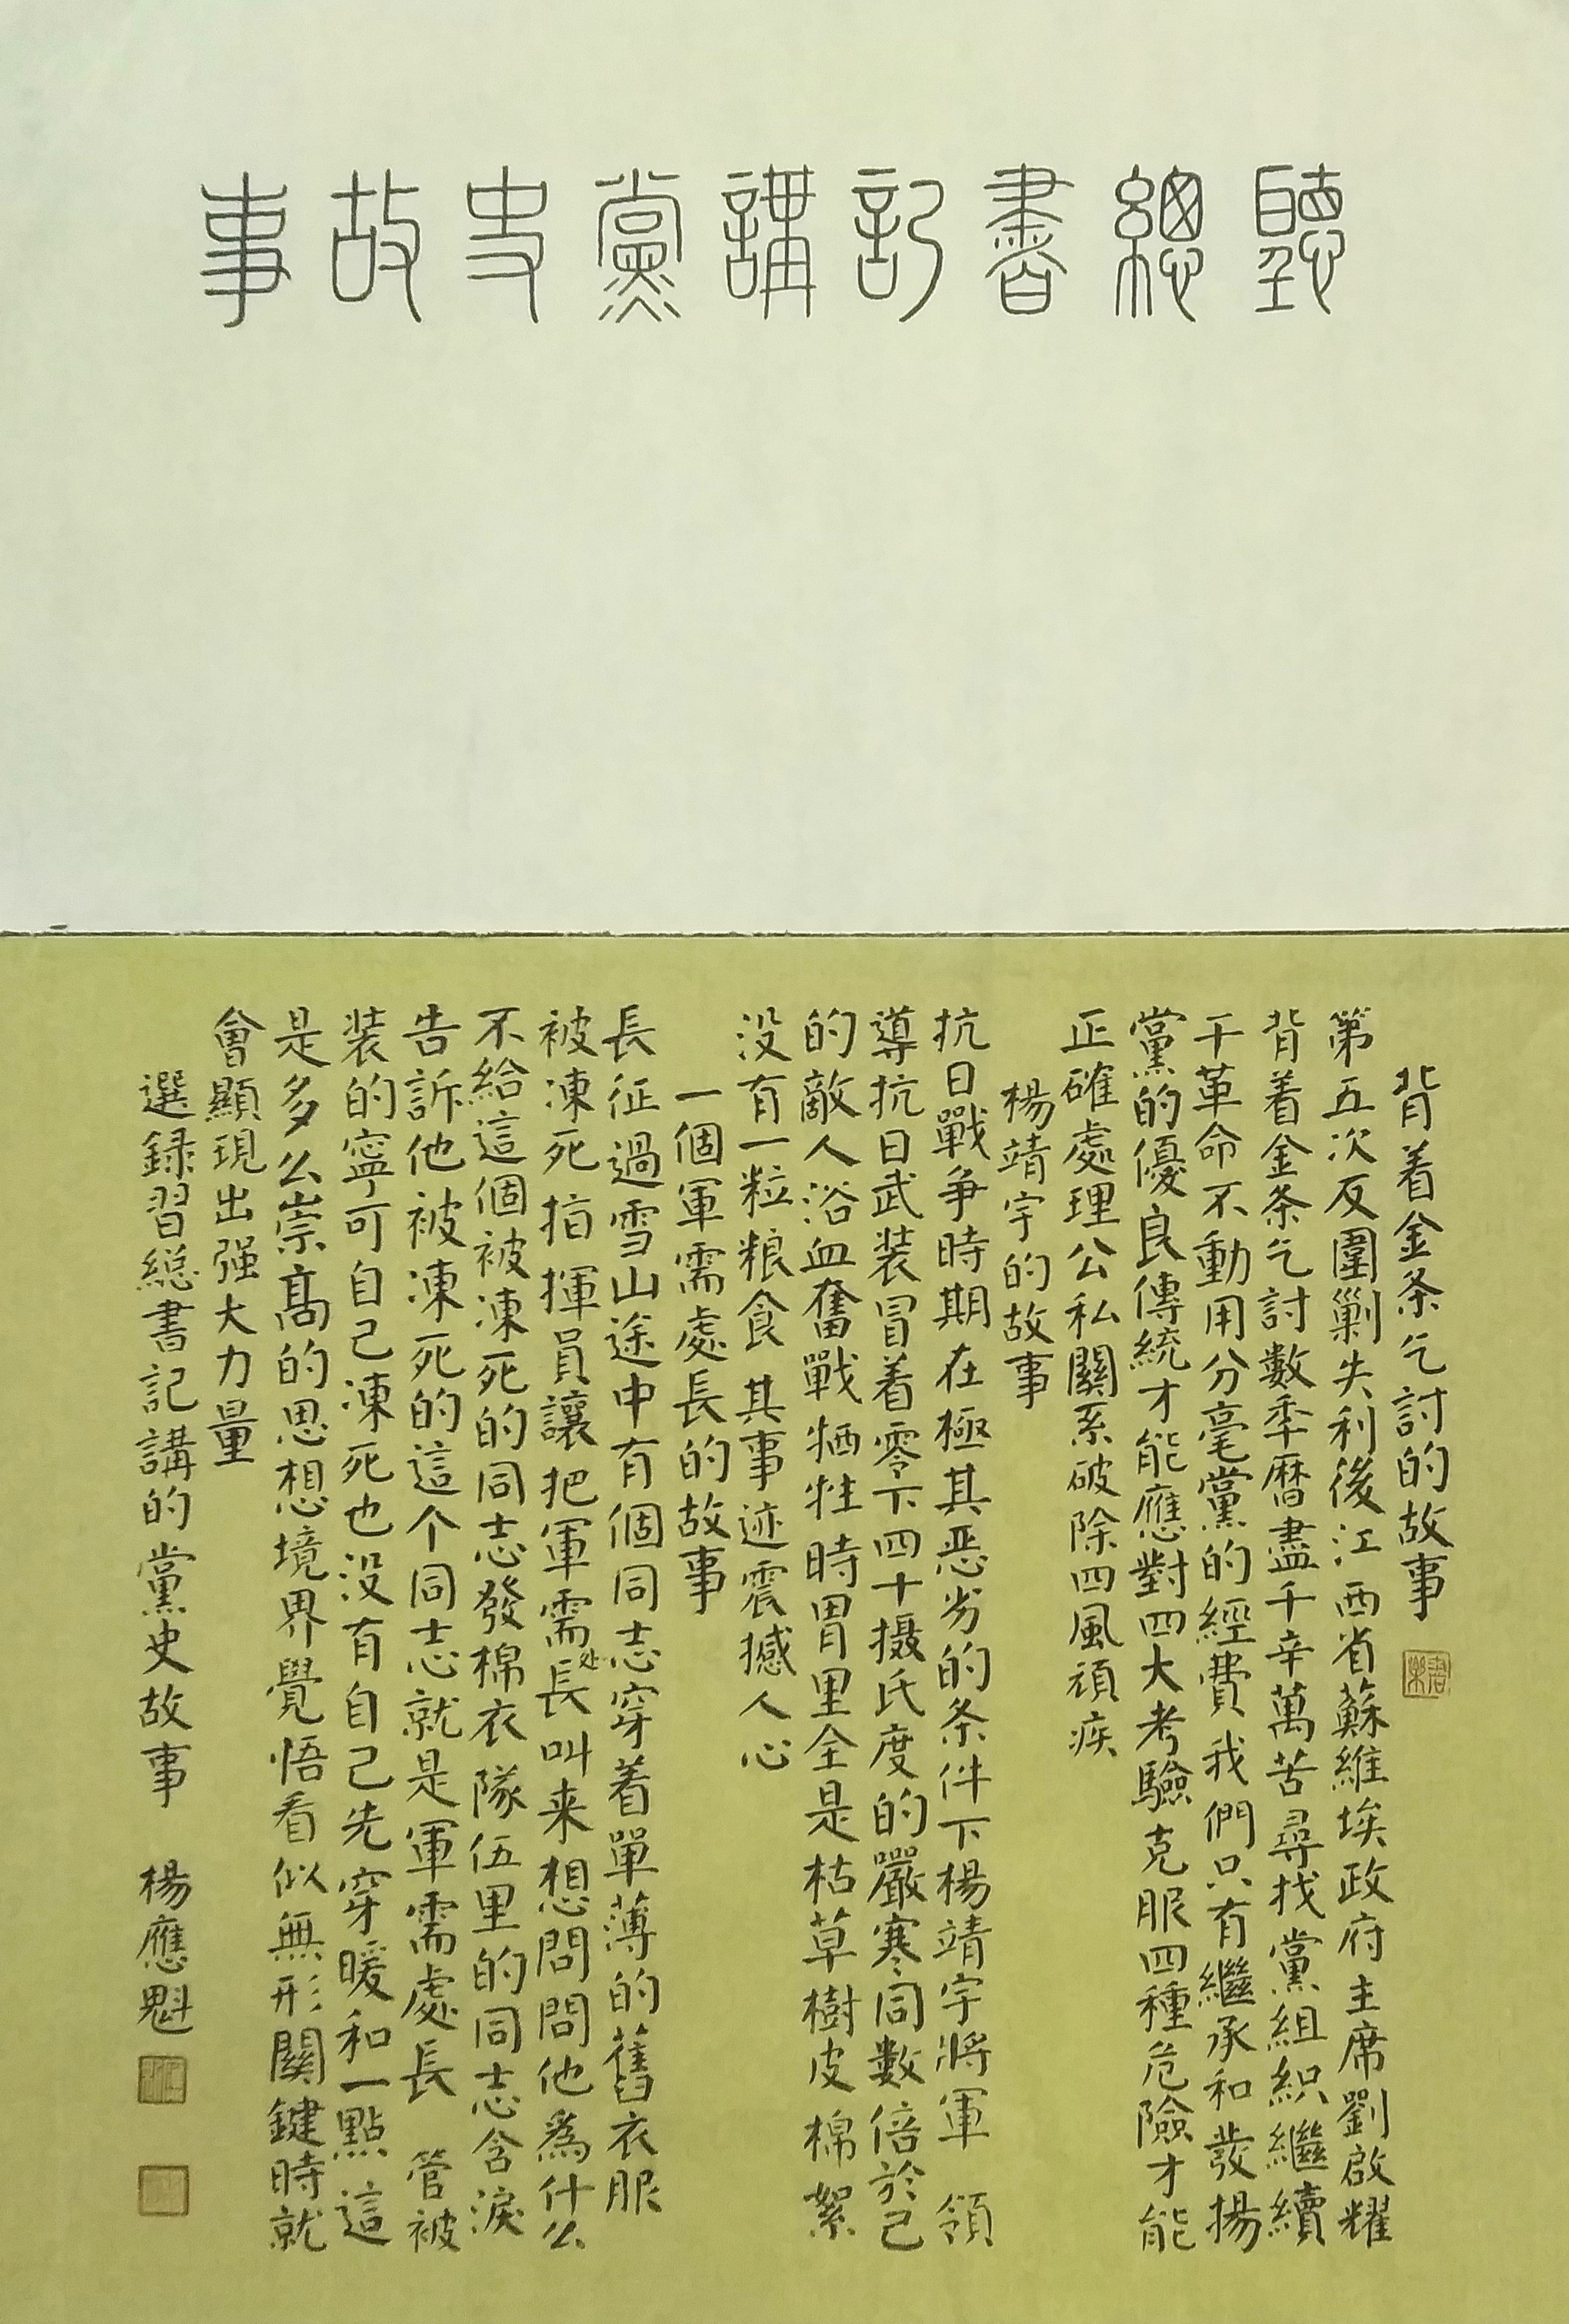 聽總書記講黨史故事
背着金条乞討的故事
第五次反圍剿失利後江西省蘇維埃政府主席劉啟耀
背着金条乞討數年曆盡千辛萬苦尋找黨組織繼續
干革命不動用分毫黨的經費我們只有繼承和發揚
黨的優良傳統才能應對四大考驗克服四種危險才能
正確處理公私關系破除四風頑疾
楊靖宇的故事
抗日戰争時期在極其恶劣的条件下楊靖宇將軍領
導抗日武装冒着零下四十摄氏度的嚴寒同數倍於己
的敵人浴血奮戰牺牲時胃里全是枯草樹皮棉絮
没有一粒粮食其事迹震撼人心
一個軍需處長的故事
長征過雪山途中有個同志穿着單薄的舊衣服
被凍死指揮員讓把軍需处長叫来想問問他為什么
不給這個被凍死的同志發棉衣隊伍里的同志含淚
告訴他被凍死的這个同志就是軍需處長管被
装的寧可自己凍死也没有自己先穿暖和一點這
是多么崇高的思想境界覺悟看似無形關鍵時就
會顯現出强大力量
選録習總書記講的黨史故事 楊應魁